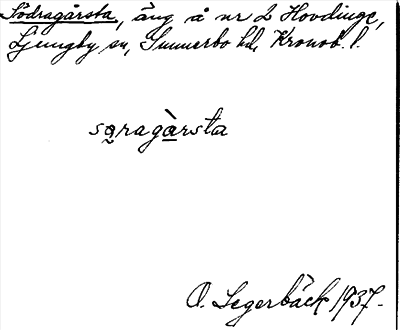 Södragårsta, äng å nr 2 Hovdinge,
Ljungby sn, Sunnerbo hd, Kronob. l.
sạragàrsta
O. Segerbäck 1937.